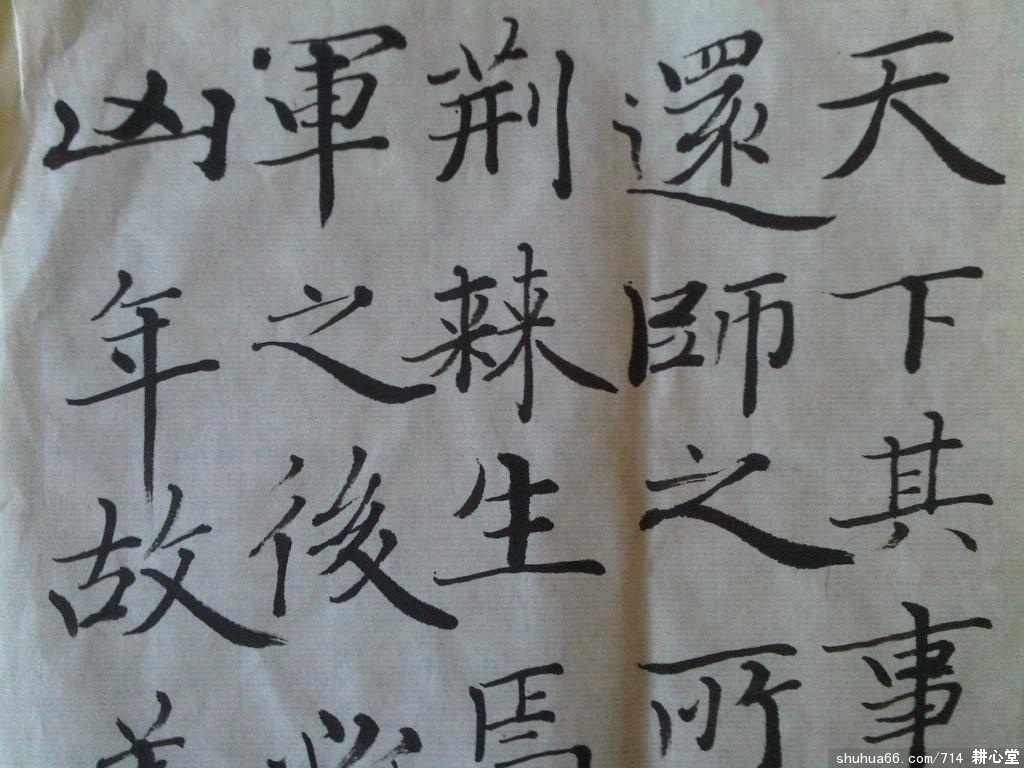 天下其事
還師之所
荆棘生焉
軍之後必
凶年故善
shuhua66.com/714 耕心堂